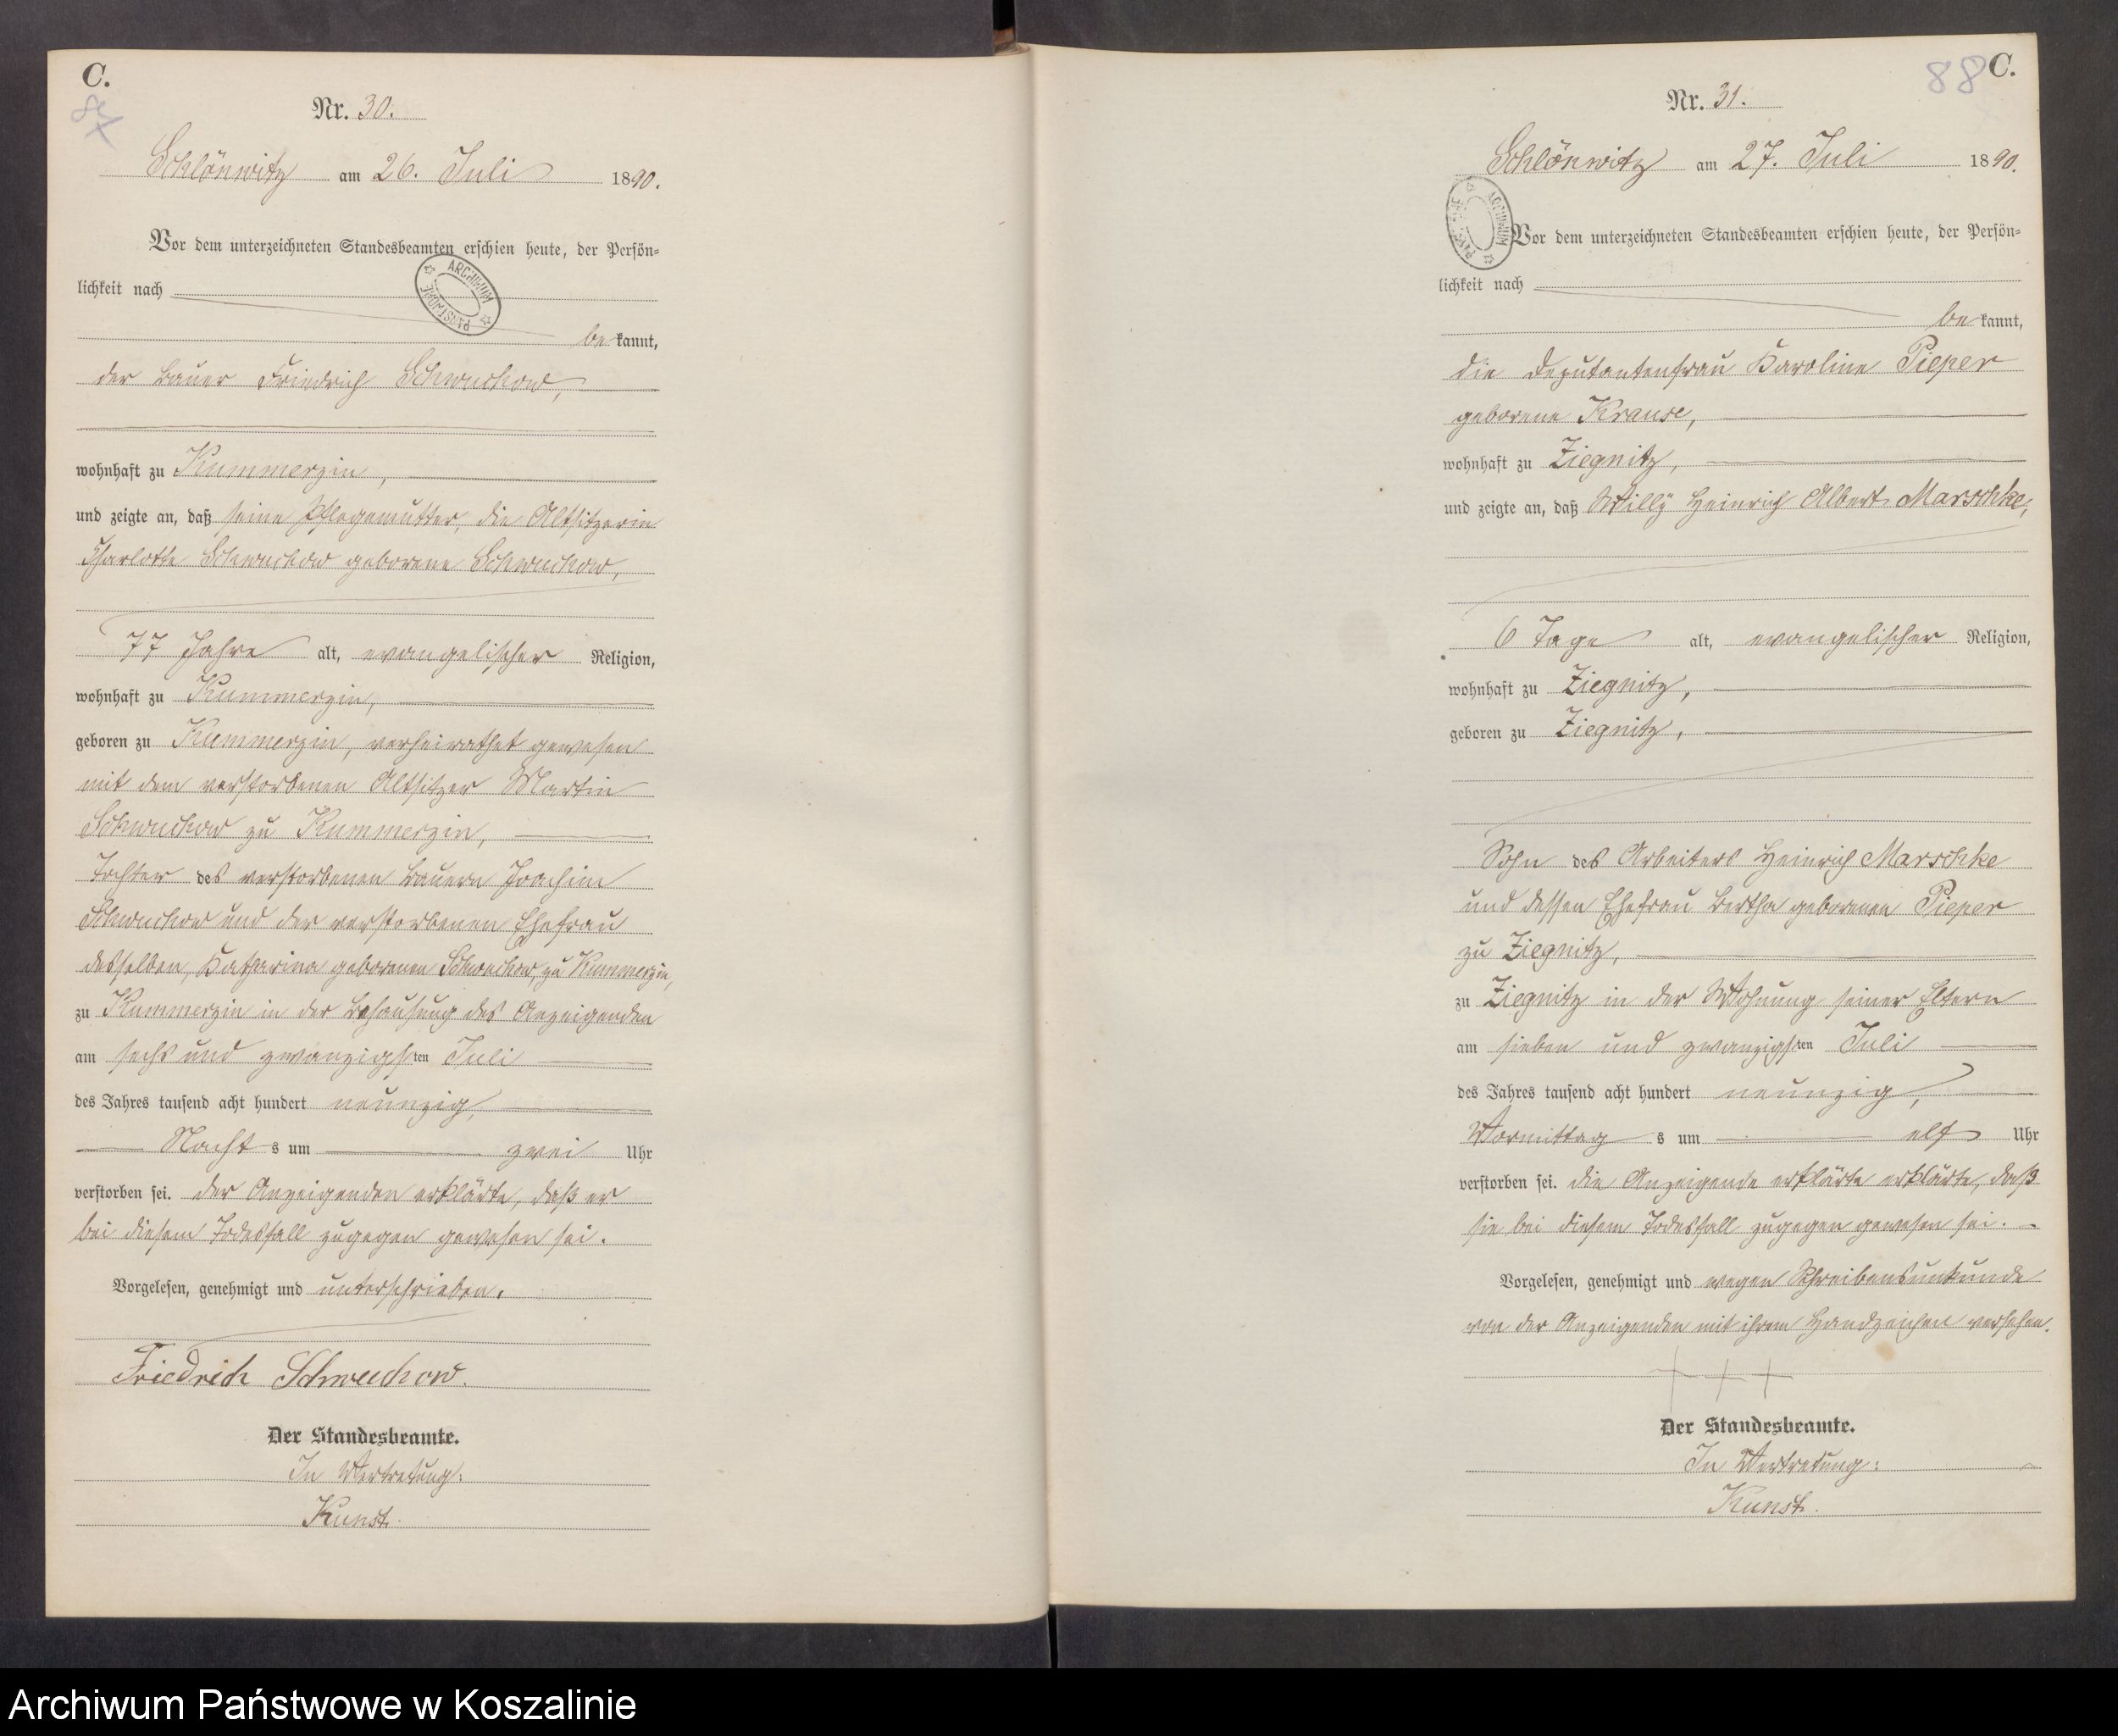 C.
Nr. 30.
Schlönwitz am 26. Juli 1890.
Vor dem unterzeichneten Standesbeamten erschien heute, der Persön-
lichkeit nach
ARCHIWUM PAŃSTWOWE
be kannt,
der Bauer Friedrich Schwuchow,
wohnhaft zu Kummerzin,
und zeigte an, daß seine Pflegemutter, die Altsitzerin
Charlotte Schwuchow geborene Schwuchow,
77 Jahre alt, evangelischer Religion,
wohnhaft zu Kummerzin,
geboren zu Kummerzin, verheirathet gewesen
mit dem verstorbenen Altsitzer Martin
Schwuchow zu Kummerzin,
Tochter des verstorbenen Bauern Joachim
Schwuchow und der verstorbenen Ehefrau
desselben, Katharina geborenen Schwuchow, zu Kummerzin,
zu Kummerzin in der Behausung des Anzeigenden
am sechs und zwanzigsten Juli
des Jahres tausend acht hundert neunzig,
Nacht s um zwei Uhr
verstorben sei. Der Anzeigenden erklärte, daß er
bei diesem Todesfall zugegen gewesen sei.
Vorgelesen, genehmigt und unterschrieben.
Friedrich Schwuchow.
Der Standesbeamte.
In Vertretung:
Kunst.
88 C.
Nr. 31.
Schlönwitz am 27. Juli 1890.
ARCHIWUM
Vor dem unterzeichneten Standesbeamten erschien heute, der Persön-
lichkeit nach
be kannt,
die Deputantenfrau Karoline Pieper
geborene Krause,
wohnhaft zu Ziegnitz,
und zeigte an, daß Willy Heinrich Albert Marschke,
6 Tage alt, evangelischer Religion,
wohnhaft zu Ziegnitz,
geboren zu Ziegnitz,
Sohn des Arbeiters Heinrich Marschke
und dessen Ehefrau Bertha geborenen Pieper
zu Ziegnitz,
zu Ziegnitz in der Wohnung seiner Eltern
am sieben und zwanzigsten Juli
des Jahres tausend acht hundert neunzig,
Vormittag s um elf Uhr
verstorben sei. Die Anzeigende erklärte erklärte, daß
sie bei diesem Todesfall zugegen gewesen sei.
Vorgelesen, genehmigt und wegen Schreibensunkunde
von der Anzeigenden mit ihrem Handzeichen versehen.
+++
Der Standesbeamte.
In Vertretung:
Kunst.
Archiwum Państwowe w Koszalinie